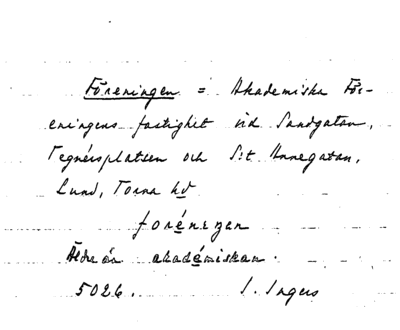 Föreningen = Akademiska För-
eningens fastighet vid Sandgatan,
Tegnérsplatsen och S:t Annegatan,
Lund, Torna hd
forénıŋen
Äldre än akadémiskan.
5026. I. Ingers